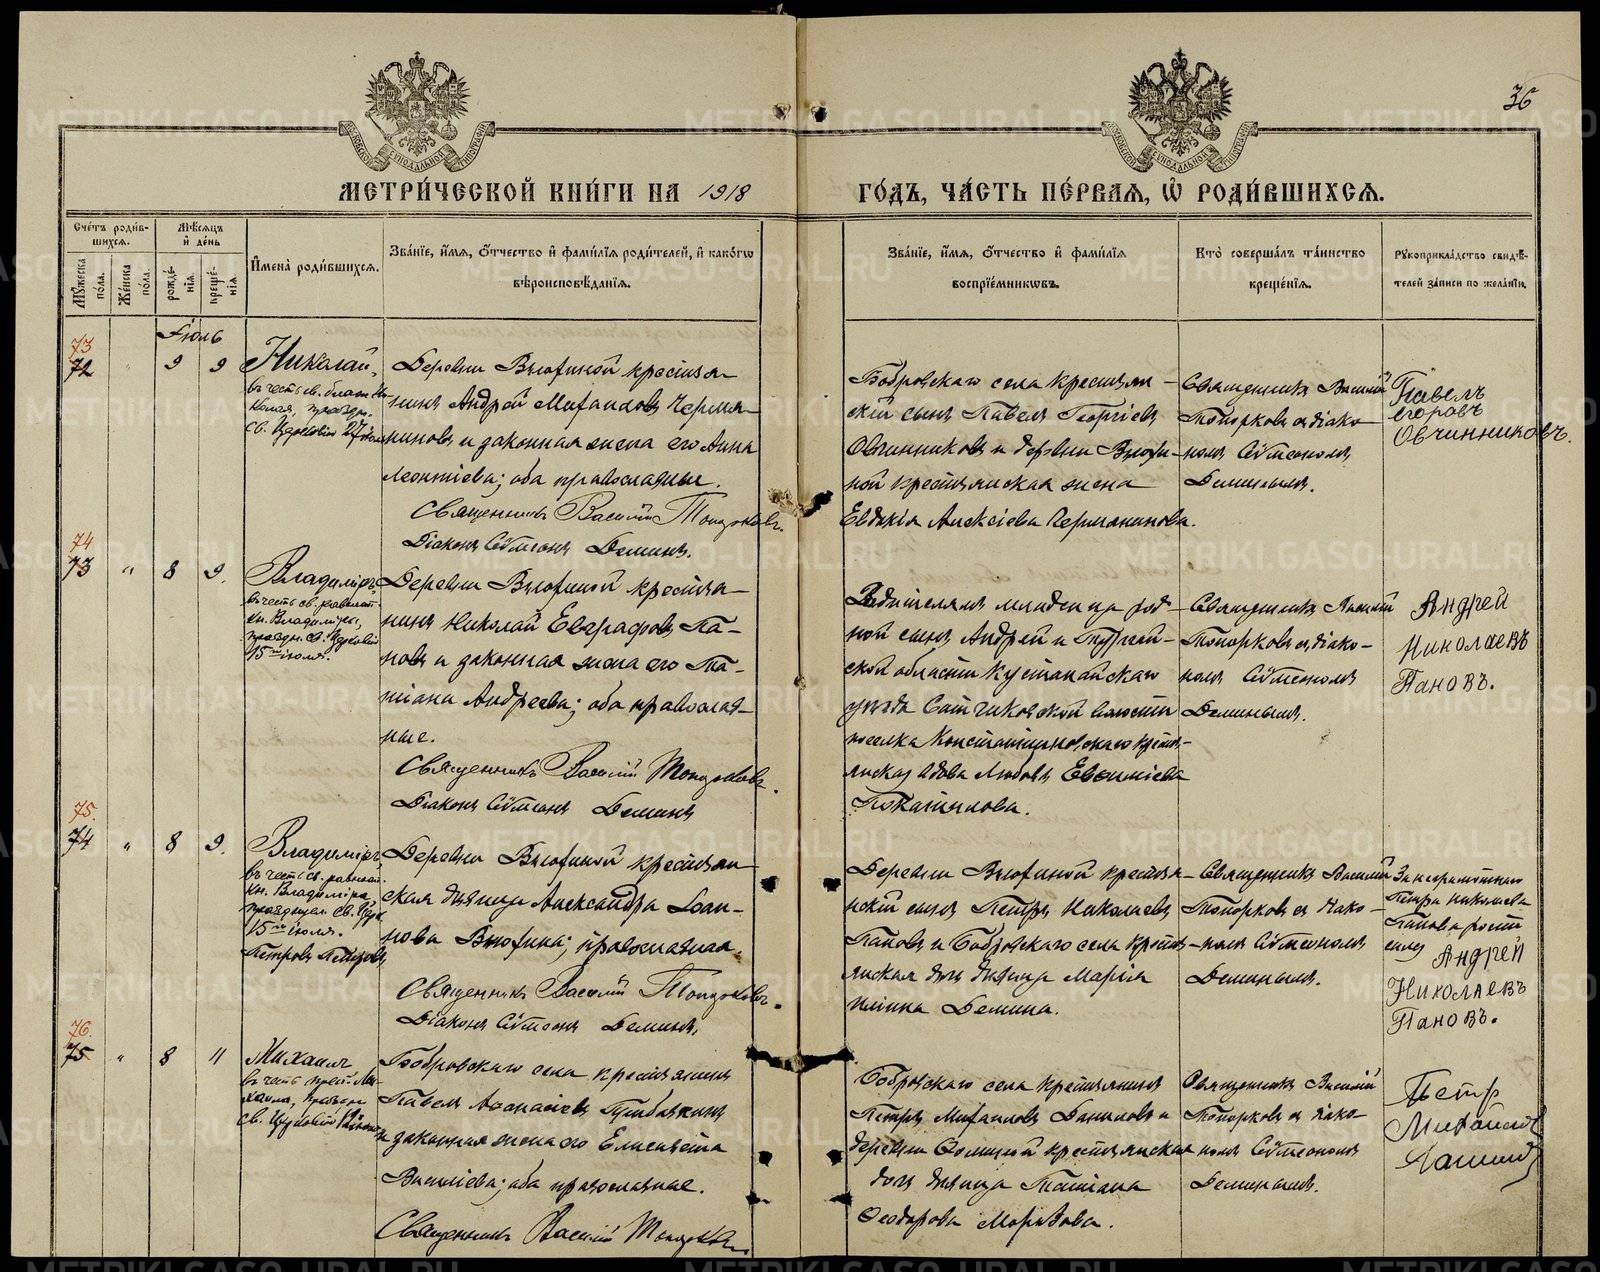 36
МЕТРИ́ЧЕСКОЙ КНИ́ГИ НА 1918
ГО́ДЪ, ЧА́СТЬ ПЕ́РВАЯ, Ѿ РОДИ́ВШИХСЯ.
Сче́тъ роди́в-
шихся.
Мѣ́сяцъ
и҆ де́нь
Му́жеска
по́ла.
Же́нска
по́ла.
рожде́-
нія.
креще́-
нія
И҆мена̀ роди́вшихся.
Зва́ніе, и҆́мя, ѻ҆́тчество и҆ фами́лія роди́телей, и҆ како́гѡ
вѣроисповѣ́данія.
Зва́ніе, и҆́мя, ѻ҆́тчество и҆ фами́лія
воспріе́мникѡвъ.
Кто̀ соверша́лъ та́инство
креще́нія.
Рꙋкоприкла́дство свидѣ́-
телей за́писи по жела́нію.
Іюль
73
72 " 9 9
Николай,
въ честь св.
св. Церковію
Деревни Вьюхиной крестья-
нинъ Андрей Михаиловъ Черма-
ниновъ и законная жена его Анна
Леонтіева; оба православные.
Священникъ Василій Топорковъ.
Діаконъ Сѵмеонъ Деминъ.
Бобровскаго села крестьян-
скій сынъ Павелъ Георгіевъ
Овчинниковъ и деревни Вьюхи-
ной крестьянская жена
Евдокія Алексіева Черманинова.
Священникъ Василій
Топорковъ съ діако-
номъ Сѵмеономъ
Деминымъ.
Павелъ
Егоровъ
Овчинниковъ.
74
73 " 8 9.
Владиміръ,
въ честь св. равноап.
кн. Владиміра,
праздн. св. Церковію
15го іюля.
Деревни Вьюхиной крестья-
нинъ Николай Евграфовъ Па-
новъ и законная жена его Та-
тіана Андреева; оба православ-
ные.
Священникъ Василій Топорковъ.
Діаконъ Сѵмеонъ Деминъ
Родителямъ младенца род-
ной сынъ Андрей и Тургай-
ской области Кустанайскаго
уѣзда волости
поселка Константиновскаго крестья-
нская вдова Любовь Евѳиміева
Священникъ Василій
Топорковъ съ діако-
номъ Сѵмеономъ
Деминымъ.
Андрей
Николаевъ
Пановъ.
75.
74 " 8 9.
Владиміръ,
въ честь св. равноап.
кн. Владиміра,
празднуем. св. Церк.
15го іюля.
Петровъ Петровъ
Деревни Вьюхиной крестьян-
ская дѣвица Александра Іоан-
нова Вьюхина; православная.
Священникъ Василій Топорковъ.
Діаконъ Сѵмеонъ Деминъ.
Деревни Вьюхиной крестья-
нскій сынъ Петръ Николаевъ
Пановъ и Бобровскаго села кресть-
янская дочь дѣвица Марія
Иліина Демина.
Священникъ Василій
Топорковъ съ діако-
номъ Сѵмеономъ
Деминымъ.
За неграмотнаго
Петра Николаева
Панова росп
Андрей
Николаевъ
Пановъ.
76
75 " 8 11
Михаилъ
въ честь преп. Ми-
хаила, праздн.
св. Церковію
Бобровскаго села крестьянинъ
Павелъ Аѳанасіевъ
и законная жена его Елисавета
Василіева; оба православные.
Священникъ Василій Топорковъ
Бобровскаго села крестьянинъ
Петръ Михаиловъ и
деревни крестьянская
дочь дѣвица Татіана
Ѳеодорова Морозова.
Священникъ Василій
Топорковъ съ діако-
номъ Сѵмеономъ
Деминымъ.
Петръ
METRIKI.GASO-URAL.RU